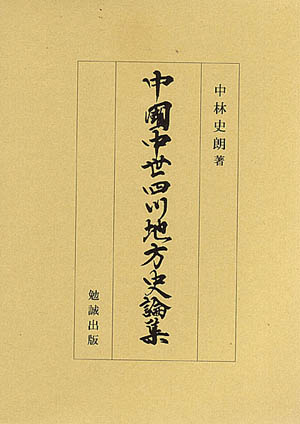 中林史朗著
中國中世四川地方史論集
勉誠出版